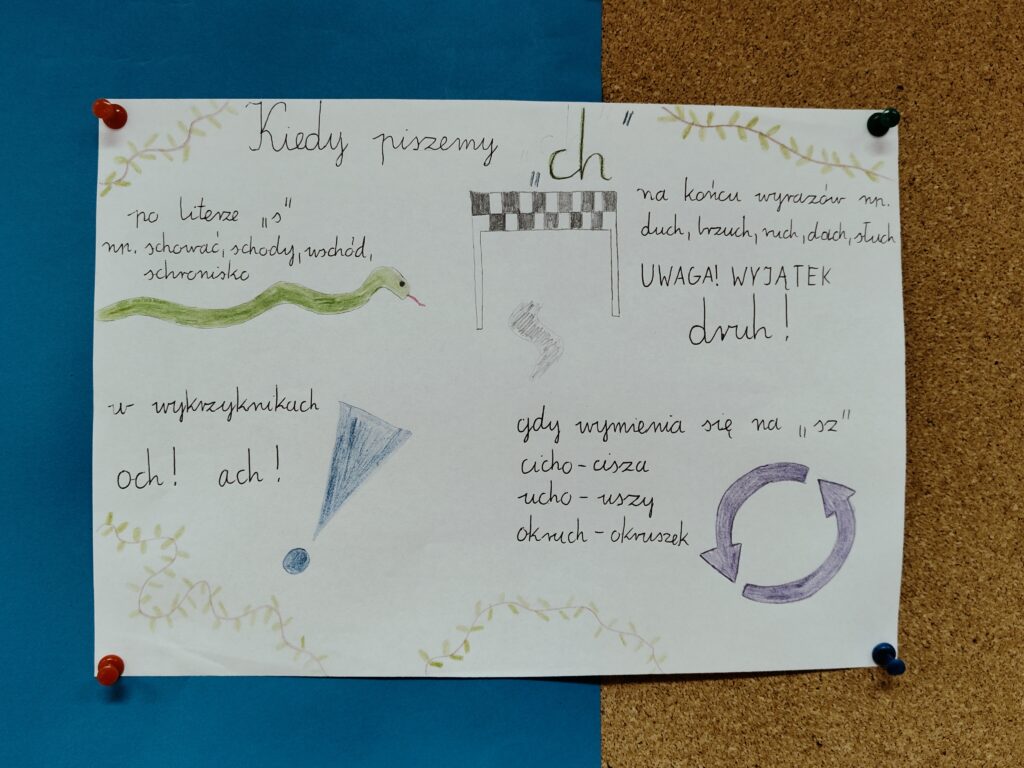 Kiedy piszemy „ch"
po literze „s"
np. schować, schody, wschód,
schronisko
na końcu wyrazów np.
duch, brzuch, ruch, dach, słuch
UWAGA! WYJĄTEK
druh!
w wykrzyknikach
och! ach!
gdy wymienia się na „sz"
cicho - cisza
ucho - uszy
okruch - okruszek